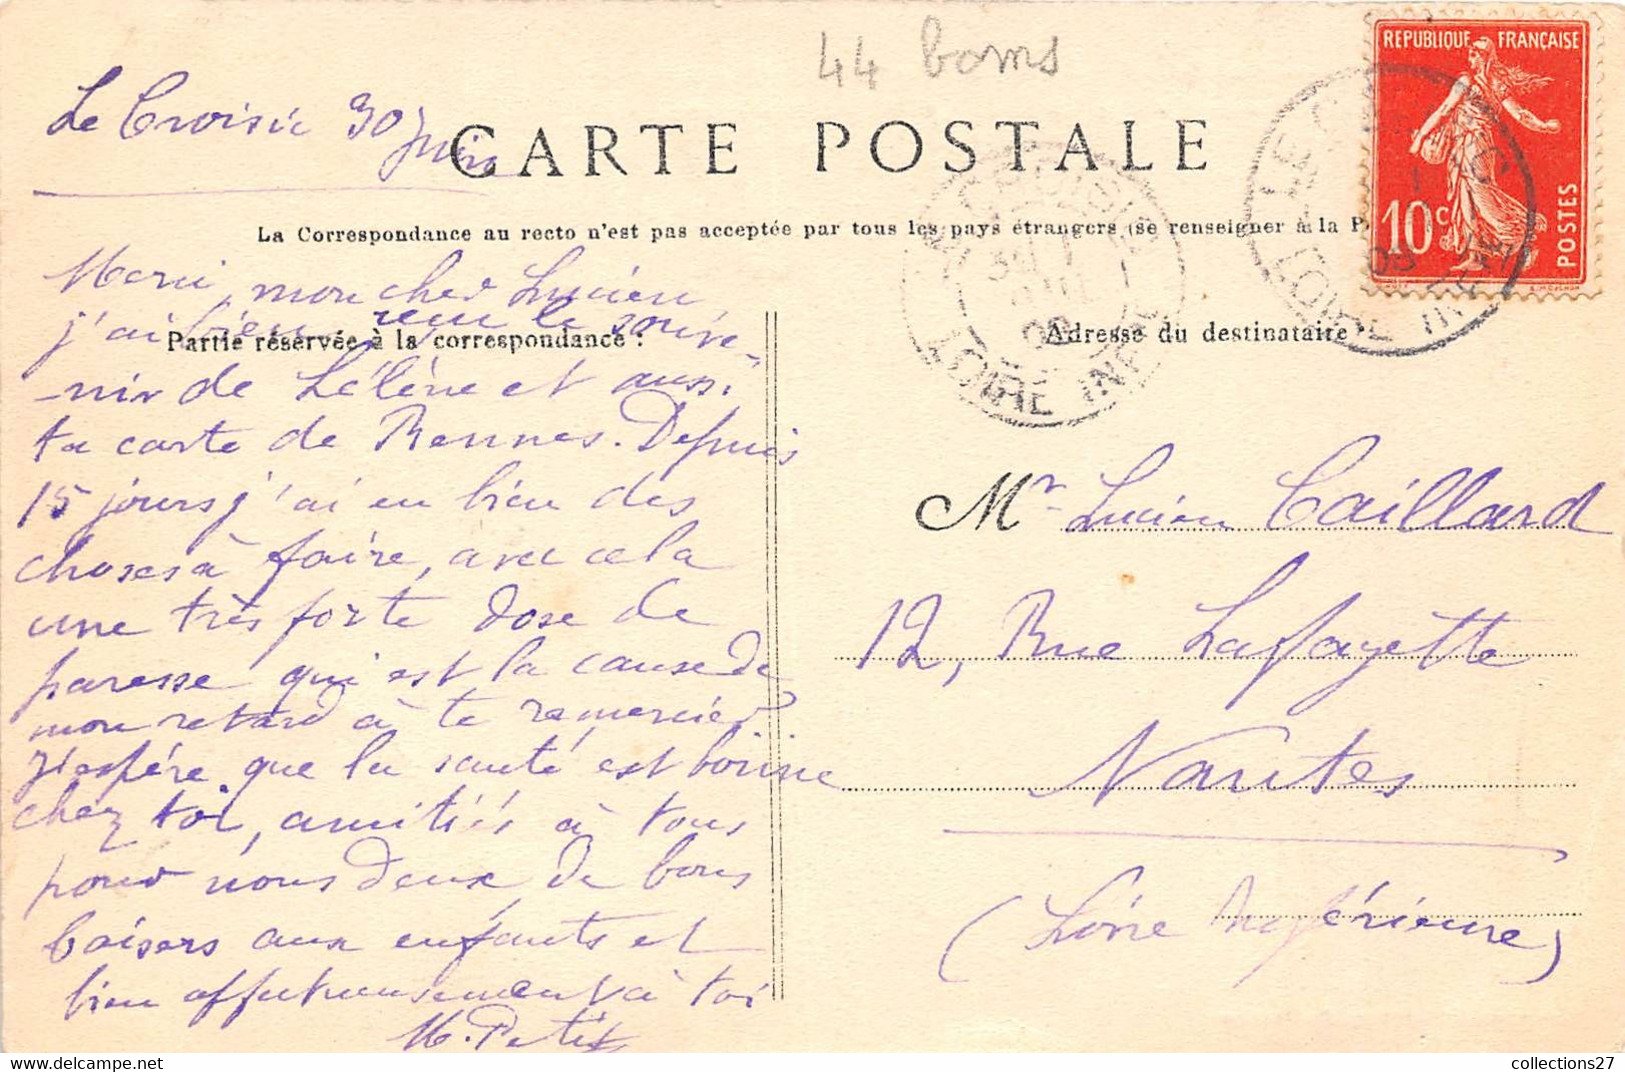 44 boms
Le Croisic 30 Juin
CARTE POSTALE
REPUBLIQUE FRANÇAISE
10c
POSTES
La Correspondance au recto n'est pas acceptée par tous les pays étrangers (se renseigner à la P
Merci, mon cher Lucien
j'ai bien reçu le souve-
Partie réservée à la correspondance :
-nir de Hélène et aussi
ta carte de Rennes. Depuis
15 jours j'ai eu bien des
choses à faire, avec cela
une très forte dose de
paresse qui est la cause de
mon retard à te remercier
J'espère que la santé est bonne
chez toi, amitiés à tous
pour nous deux, de bons
baisers aux enfants et
bien affectueusement à toi
M. Petit
LE CROISIC
30
09
LOIRE INFRE
LE CROISIC
09
LOIRE INFRE
Adresse du destinataire
Mr Lucien Caillard
12, Rue Lafayette
Nantes
(Loire Inférieure)
collections27